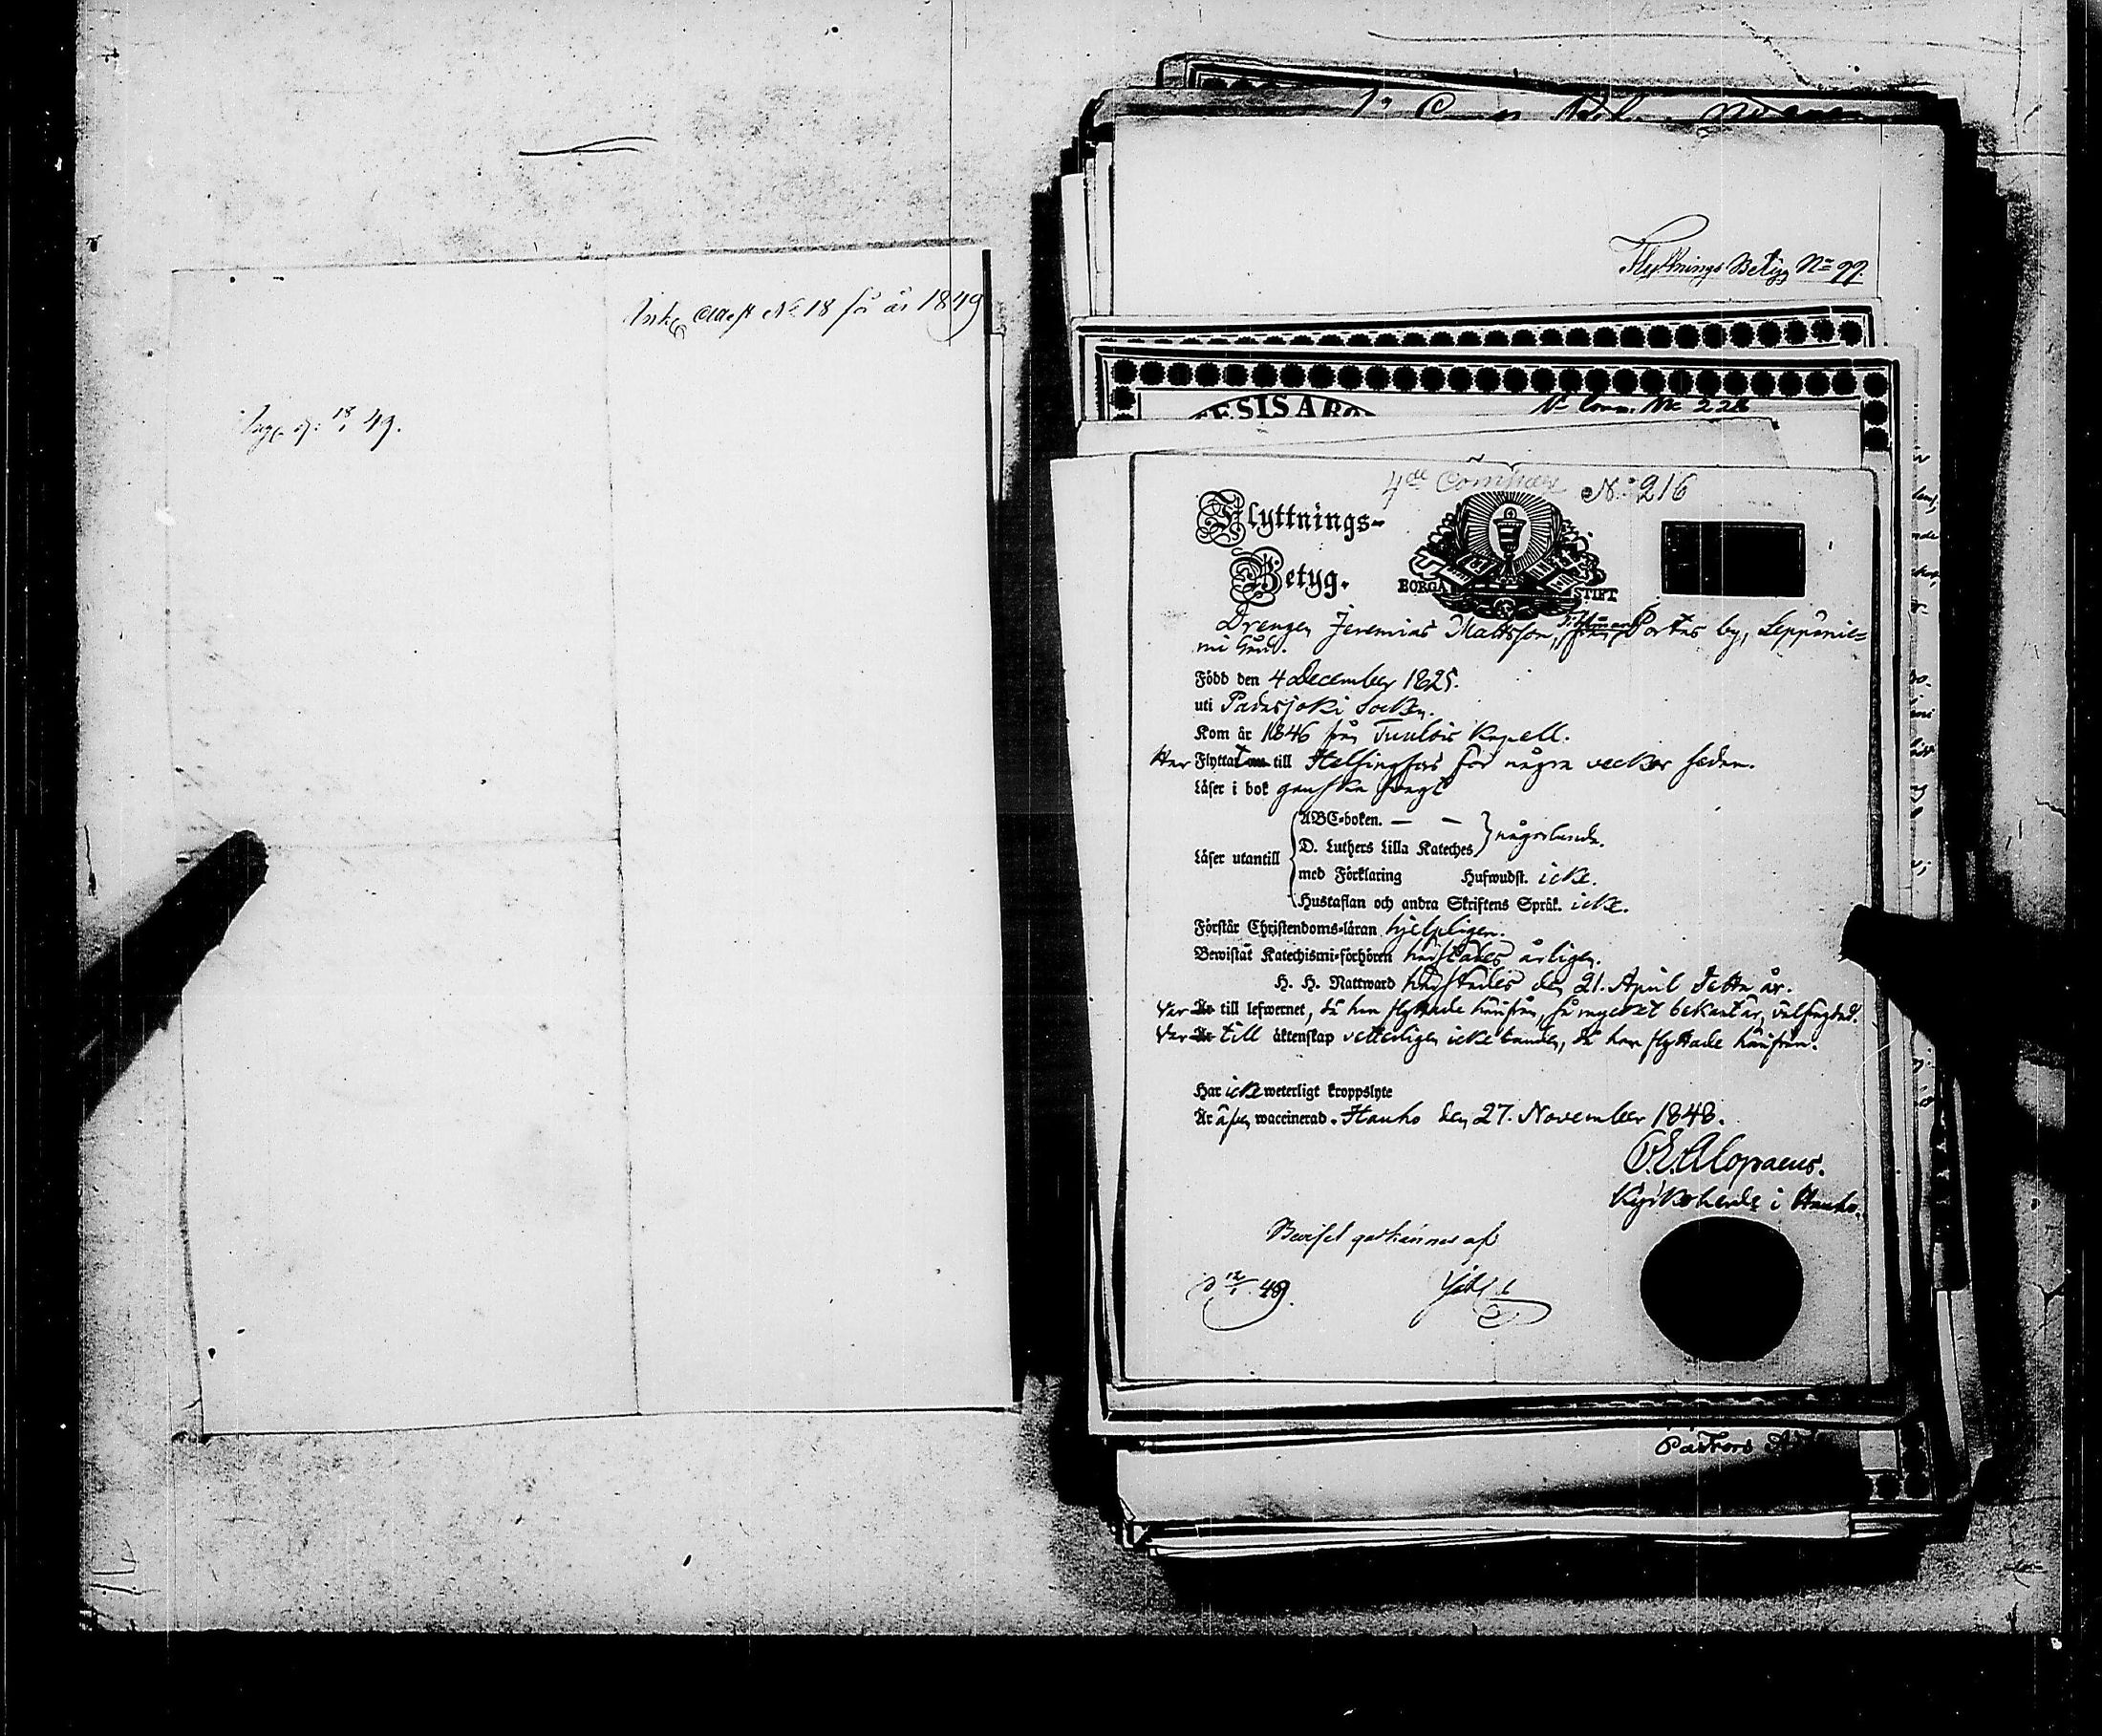 Attest No 18 för år 1849
18/1 49.
Flyttnings Betyg No 77.
No 228
4de Compani No 216
Flyttnings-
Betyg.
BORGÅ STIFT
Drengen Jeremias Mattsson, från Portas by, Leppänie-
mi
Född den 4 December 1825.
uti Padasjoki Socken.
Kom år 1846 från Tuulois Kapell.
Har Flyttat till Helsingfors för några veckor sedan.
Läser i bok ganska svagt
Läser utantill
ABC-boken. — —
D. Luthers Lilla Kateches } någorlunda.
med Förklaring Hufwudst. icke.
Hustaflan och andra Skriftens Språk. icke.
Förstår Christendoms-läran hjelpligen.
Bewistat Katechismi-förhören härstädes årligen.
H. H. Nattward härstädes den 21. April detta år.
Var till lefwernet, då han flyttade härifrån, så mycket bekant är, välfrejdad.
Var till äktenskap vetterligen icke bunden, då han flyttade härifrån.
Har icke weterligt kroppslyte
Är äfven waccinerad. Hauho den 27. November 1848.
O.E. Alopaeus.
Kyrkoherde i Hauho.
Beviset godkännes af
d 12/1 49.
Pastors